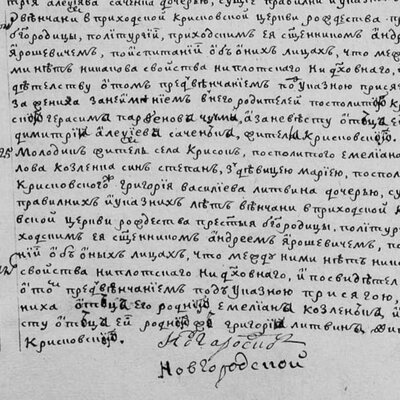 трія алеѯіѧва саченка дочерью, сущіе правилни и указн
вѣнчани в приходской Крисковской церкви рождества пр
богородицы, по літургіи, приходским ея сщенником андр
Ярошевичем, по испитаніи об оных лицах, что меж
ми нѣт никакова свойства ни плотскаго ни духовнаго,
дѣтелству о том пред вѣнчанием под указною прися
за жениха за неимѣніем в него родителей посполит
ской герасим парѳенов чума, а за невѣсту отец
димитрій алеѯіев саченок, жители Крисковскіе.
25 Молодик житель села Криско, посполитого емеліан
лова козленка син степан, з дѣвицею маріею, поспол
Крисковского григорія василіева литвина дочерью, су
правилних и указних лѣт вѣнчани в приходской К
вской церкви рождества престыя богородицы, по літур
ходским ея сщенником андреем Ярошевичем, по
ніи об оных лицах, что между ними нѣт ник
свойства ни плотскаго ни духовнаго, и по свидѣтел
о том пред вѣнчанием под указною присягою,
ниха отца его родного емеліана козленка, и
сту отца ей родного григорія литвина жит
Крисковскіе.
Новгородской